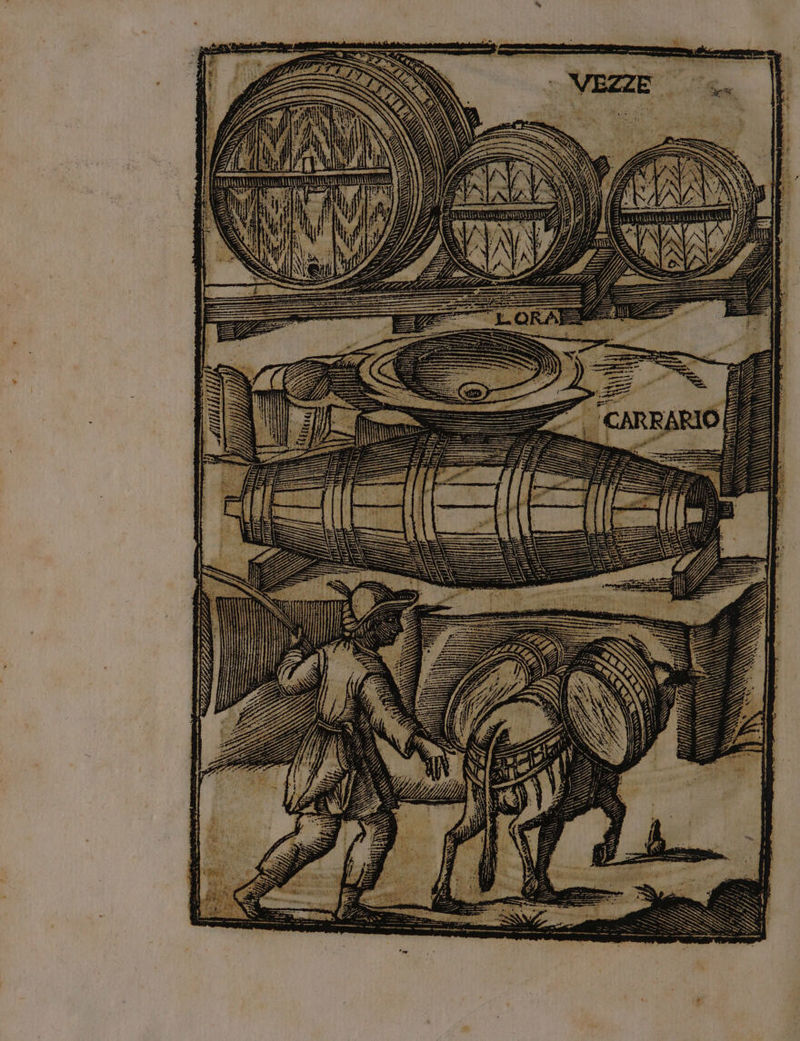 VEZZE
LORA
CARRARIO